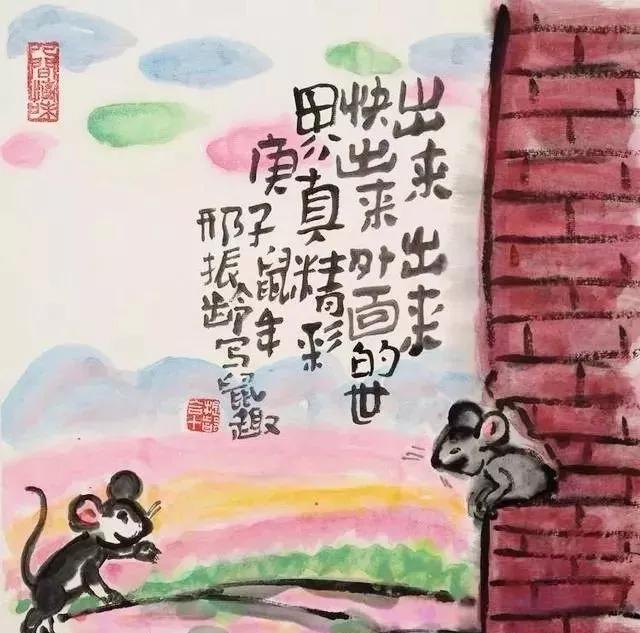 出来 出来
快出来外面的世
界真精彩
庚子鼠年
邢振龄写鼠趣